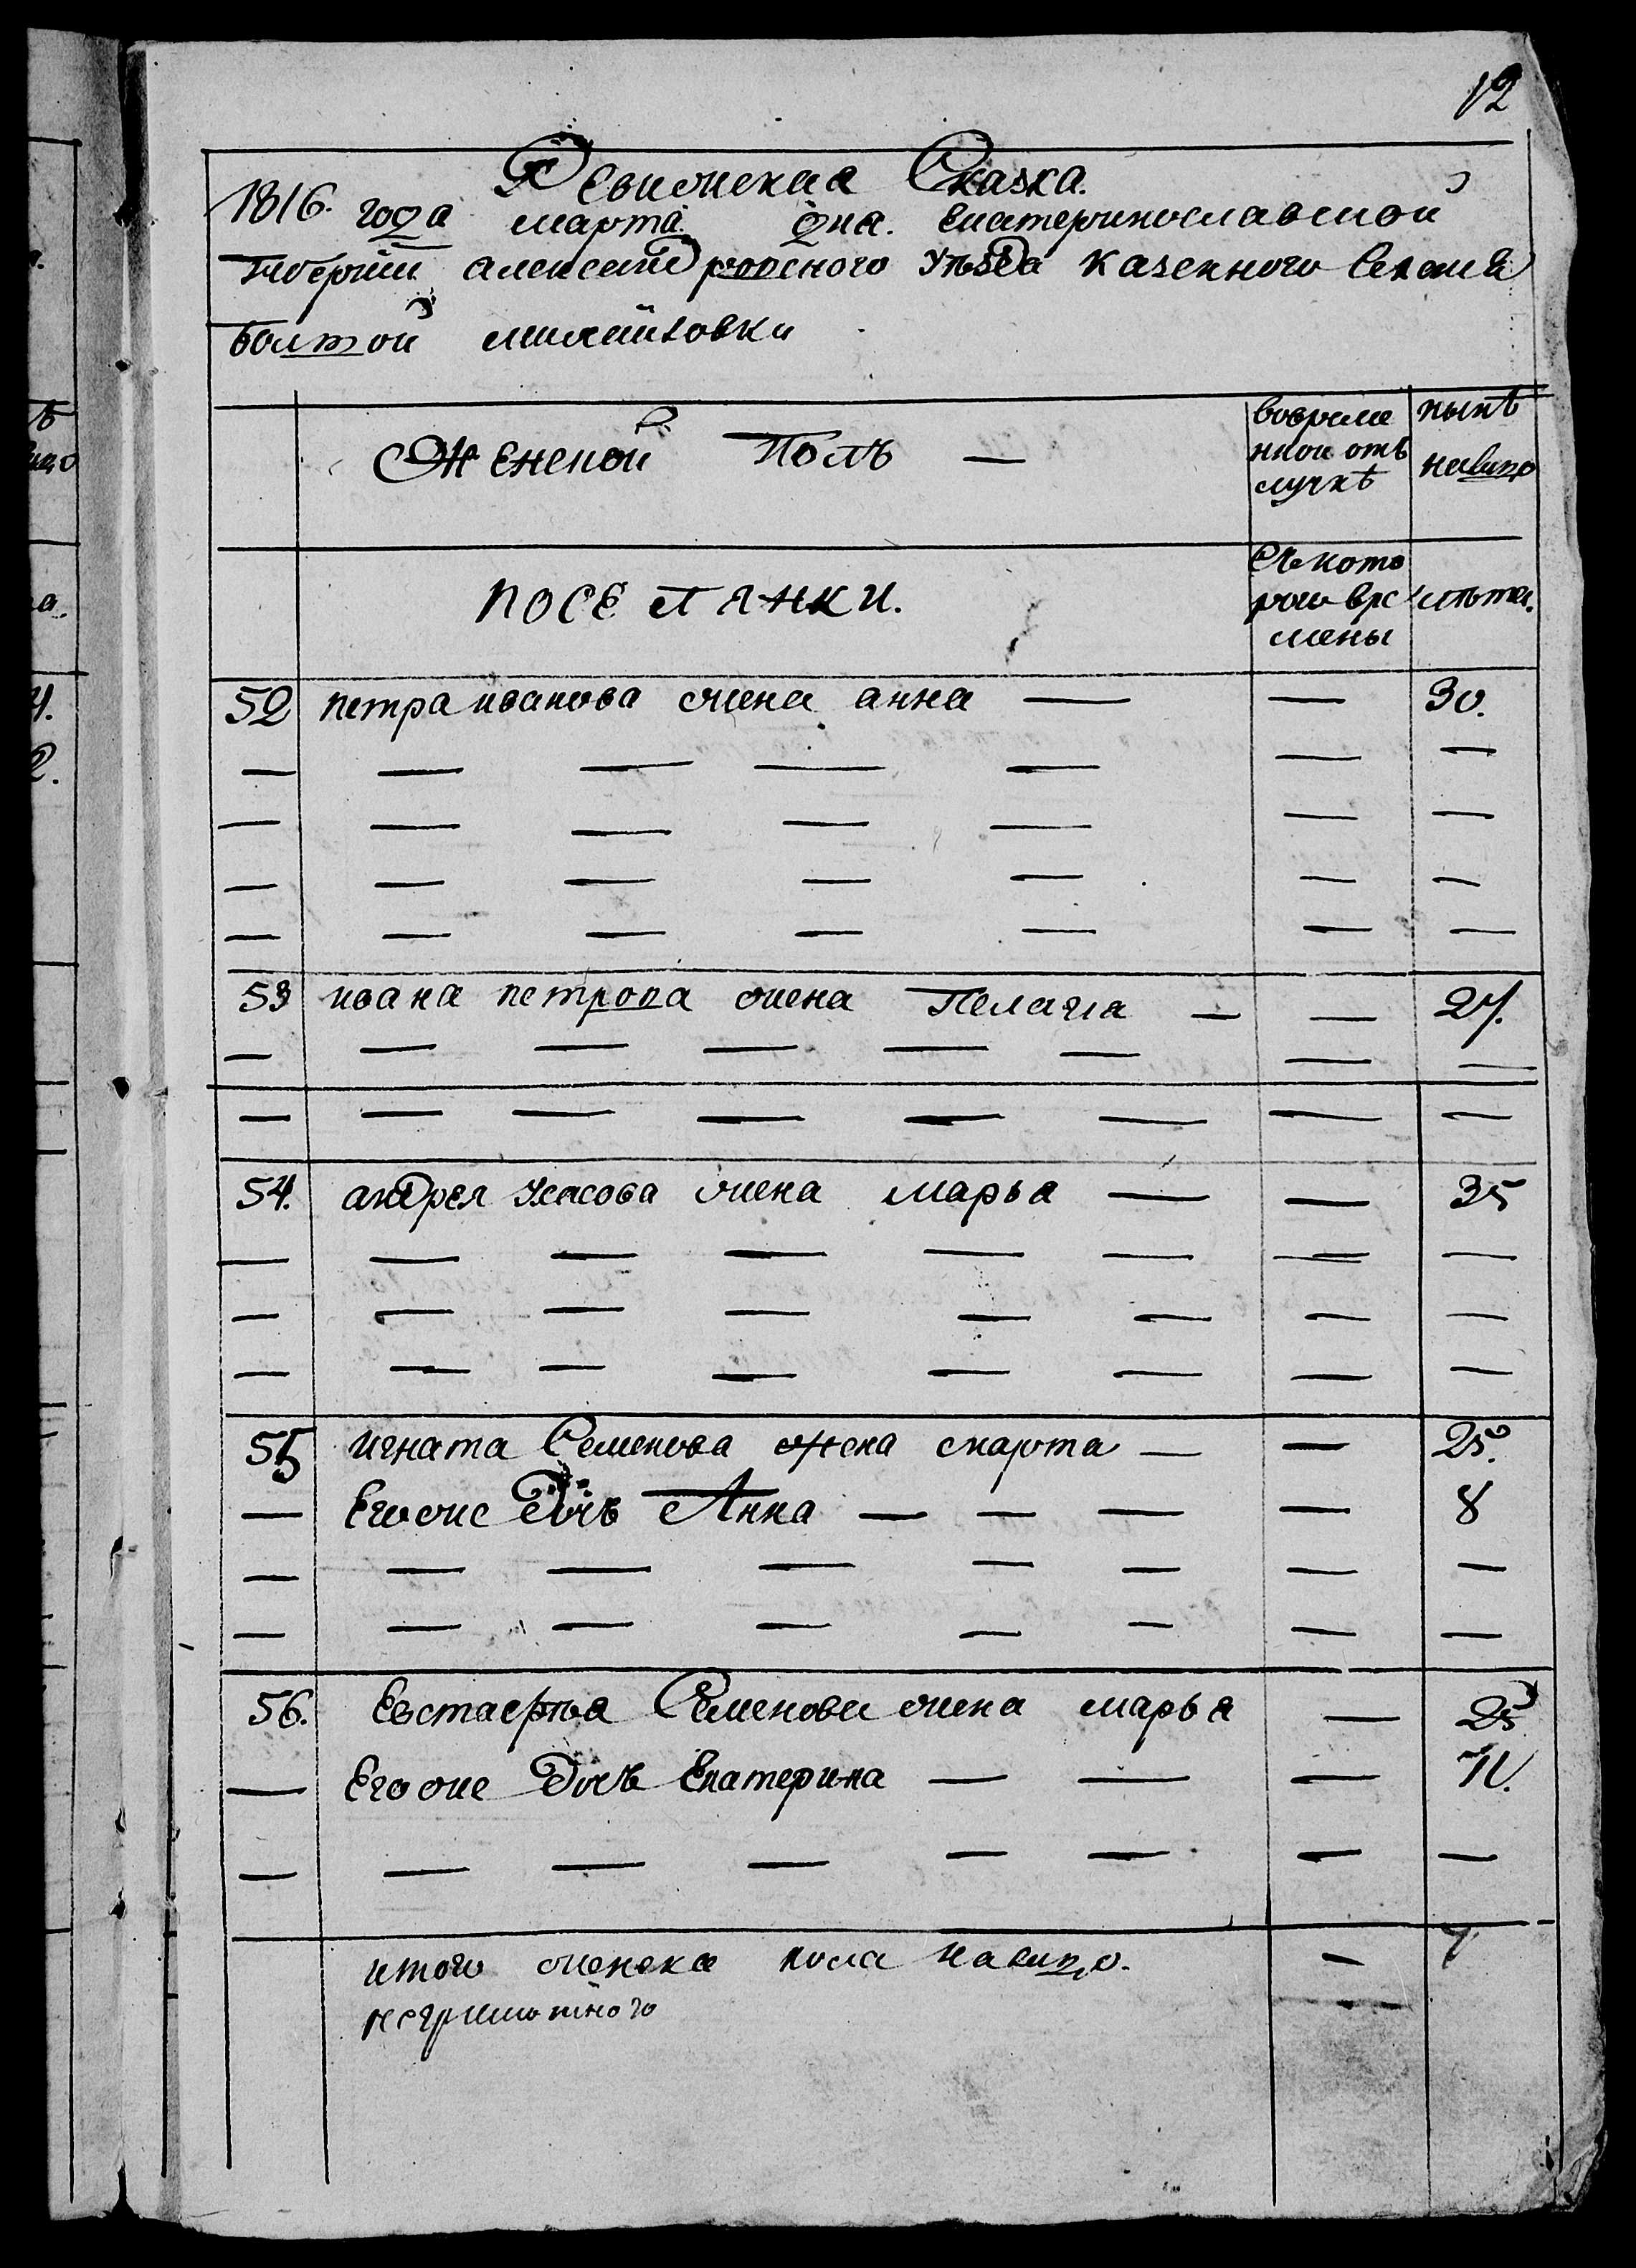 12
Ревижская Сказка.
1816. года марта. дна. Екатеринославской
Губернии Александровского Уѣзда казенного Селенія
болшой михайловки
Женской Полъ —
вовреме
нной отъ
лучкѣ
нынѣ
налицо
поселянки.
Съ кото
рого вре
мены
лѣта.
52 петра иванова жена анна — — 30.
— — — — — — —
— — — — — — —
— — — — — — —
— — — — — — —
53 ивана петрова жена Пелагіа — — 27.
— — — — — — — —
— — — — — — — —
54. андрея жена марья — — 35
— — — — — — — —
— — — — — — — —
— — — — — — — —
55 игната Семенова жена марта — — 25.
— Егоже Дочъ Анна — — — — 8
— — — — — — — —
— — — — — — — —
56. Евстафья Семенова жена марья — 25
— Егоже Дочъ Екатерина — — — 11.
— — — — — — — —
итого женска пола налицо. — 7